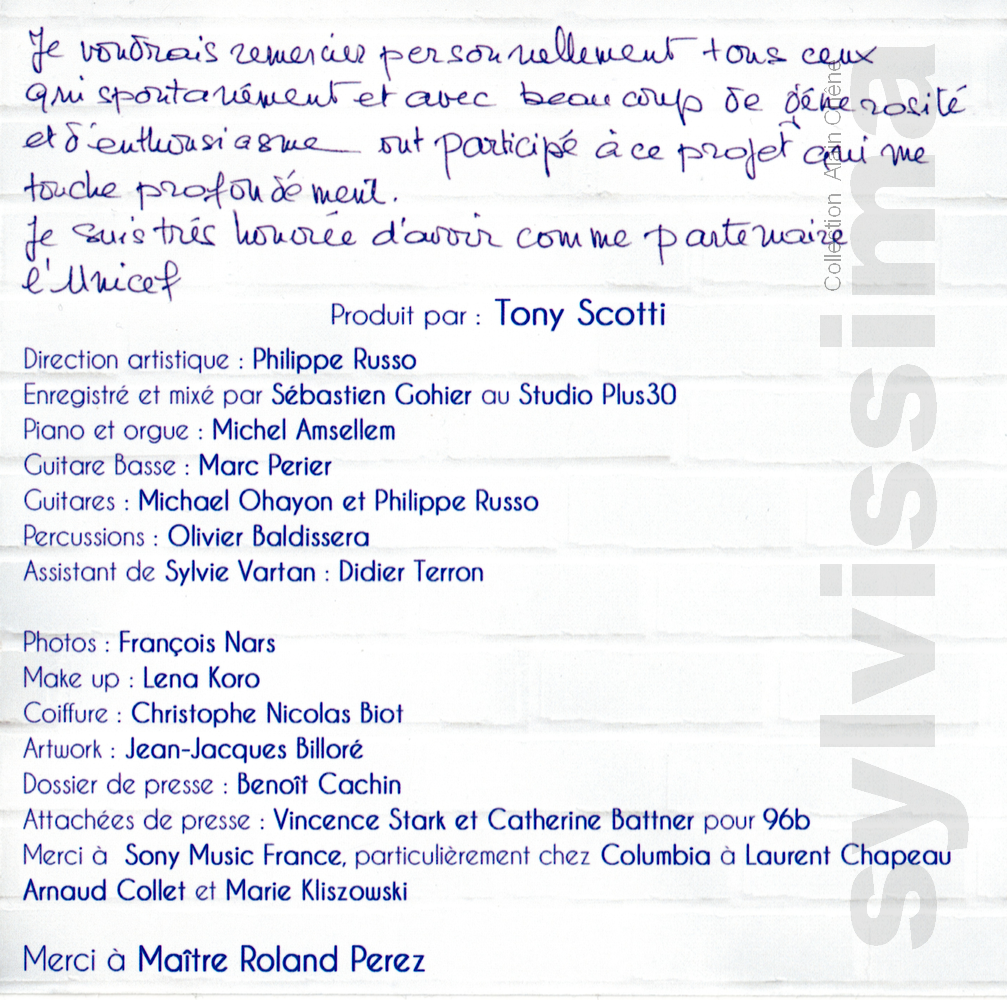 Je voudrais remercier personnellement tous ceux
qui spontanément et avec beaucoup de générosité
et d'enthousiasme ont participé à ce projet qui me
touche profondément.
Je suis très honorée d'avoir comme partenaire
l'Unicef
Produit par : Tony Scotti
Direction artistique : Philippe Russo
Enregistré et mixé par Sébastien Gohier au Studio Plus30
Piano et orgue : Michel Amsellem
Guitare Basse : Marc Perier
Guitares : Michael Ohayon et Philippe Russo
Percussions : Olivier Baldissera
Assistant de Sylvie Vartan : Didier Terron
Photos : François Nars
Make up : Lena Koro
Coiffure : Christophe Nicolas Biot
Artwork : Jean-Jacques Billoré
Dossier de presse : Benoît Cachin
Attachées de presse : Vincence Stark et Catherine Battner pour 96b
Merci à Sony Music France, particulièrement chez Columbia à Laurent Chapeau
Arnaud Collet et Marie Kliszowski
Merci à Maître Roland Perez
sylvissima
Collection Alain